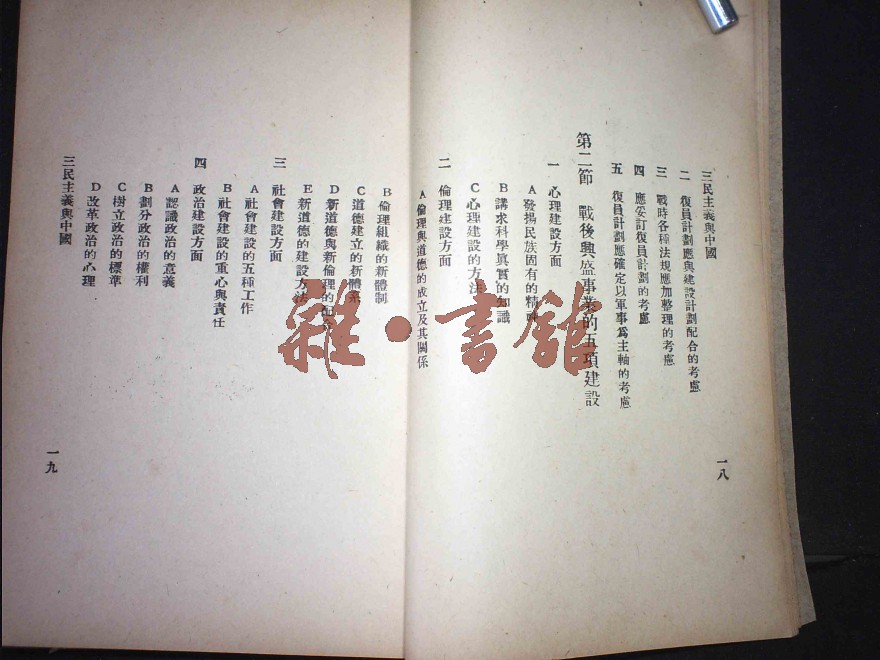 三民主義與中國
二 復員計劃應與建設計劃配合的考慮
三 戰時各種法規應加整理的考慮
四 應妥訂復員計劃的考慮
五 復員計劃應確定以軍事爲主軸的考慮
第二節 戰後興盛事業的五項建設
一 心理建設方面
A 發揚民族固有的精神
B 講求科學眞實的知識
C 心理建設的方法
二 倫理建設方面
A 倫理與道德的成立及其關係
一八
B 倫理組織的新體制
C 道德建立的新體系
D 新道德與新倫理的配合
E 新道德的建設方法
三 社會建設方面
A 社會建設的五種工作
B 社會建設的重心與責任
四 政治建設方面
A 認識政治的意義
B 劃分政治的權利
C 樹立政治的標準
D 改革政治的心理
三民主義與中國
一九
雜·書館